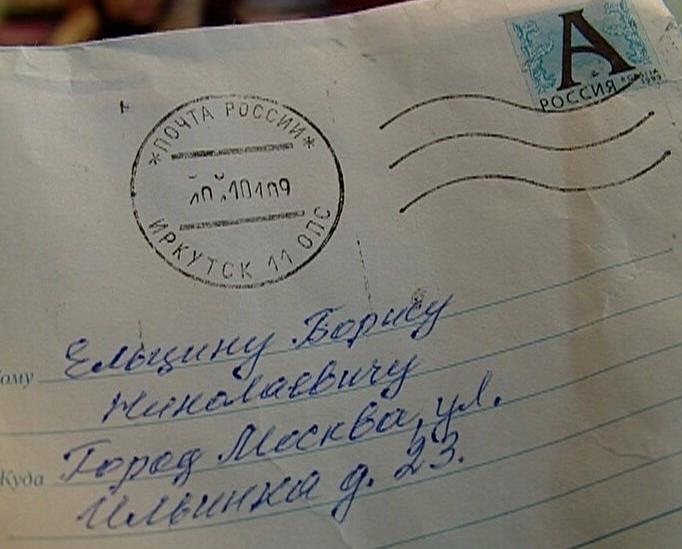 А
РОССИЯ
*ПОЧТА РОССИИ*
ИРКУТСК 11 ОПС
Кому Ельцину Борису
Николаевичу
Куда Город Москва, ул.
Ильинка д. 23.